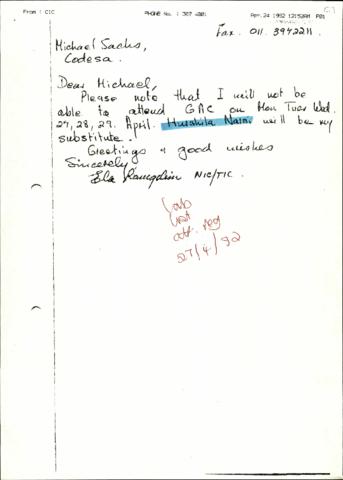 From : CIC PHONE No. : 307 4001 Apr. 24 1992 12:52AM P01
Fax. 011. 3942211.
Michael Sachs,
Codesa.
Dear Michael,
Please note that I will not be
able to attend GAC on Mon Tues Wed.
27, 28, 29. April. Naidu will be my
substitute.
Greetings & good wishes
Sincerely
Ela Ramgobin NIC/TIC.
27/4/92